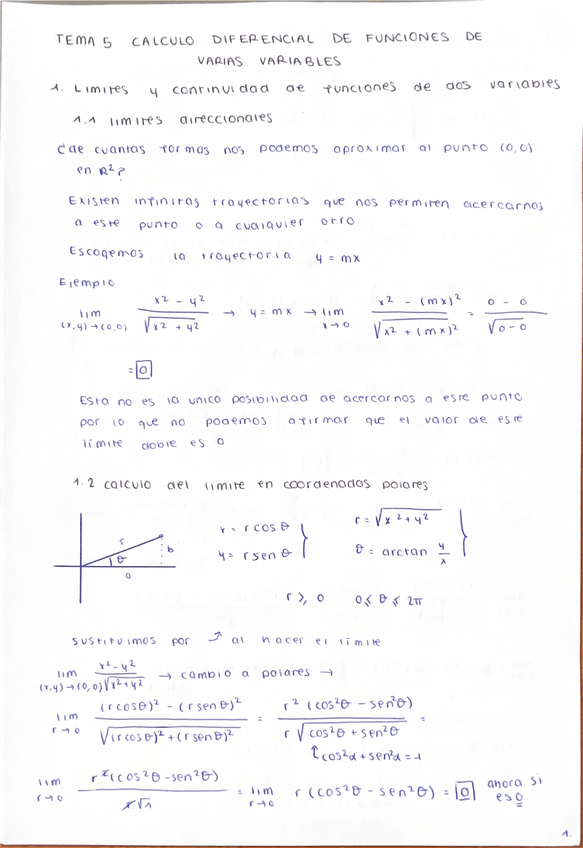 TEMA 5 CALCULO DIFERENCIAL DE FUNCIONES DE
VARIAS VARIABLES
1. Limites y continuidad de funciones de dos variables
1.1 limites direccionales
¿de cuantas formas nos podemos aproximar al punto (0,0)
en R²?
Existen infinitas trayectorias que nos permiten acercarnos
a este punto o a cualquier otro
Escogemos la trayectoria y = mx
Ejemplo
lim (x,y)→(0,0) (x² - y²)/√(x² + y²) → y = mx → lim x→0 (x² - (mx)²)/√(x² + (mx)²) = (0 - 0)/√(0 - 0)
= 0
Esta no es la unico posibilidad de acercarnos a este punto
por lo que no podemos afirmar que el valor de este
límite doble es 0
1.2 calculo del limite en coordenadas polares
r θ a b
x = r cos θ r = √(x² + y²)
y = r sen θ θ = arctan y/x
r ≥ 0 0 ≤ θ ≤ 2π
sustituimos por ↗ al hacer el límite
lim (x,y)→(0,0) (x² - y²)/√(x² + y²) → cambio a polares →
lim r→0 ((r cosθ)² - (r sen θ)²)/√((r cosθ)² + (r sen θ)²) = r² (cos²θ - sen²θ)/(r √(cos²θ + sen²θ)) =
↑cos²α + sen²α = 1
lim r→0 r²(cos²θ - sen²θ)/(r√1) = lim r→0 r (cos²θ - sen²θ) = 0 ahora si
es 0
1.